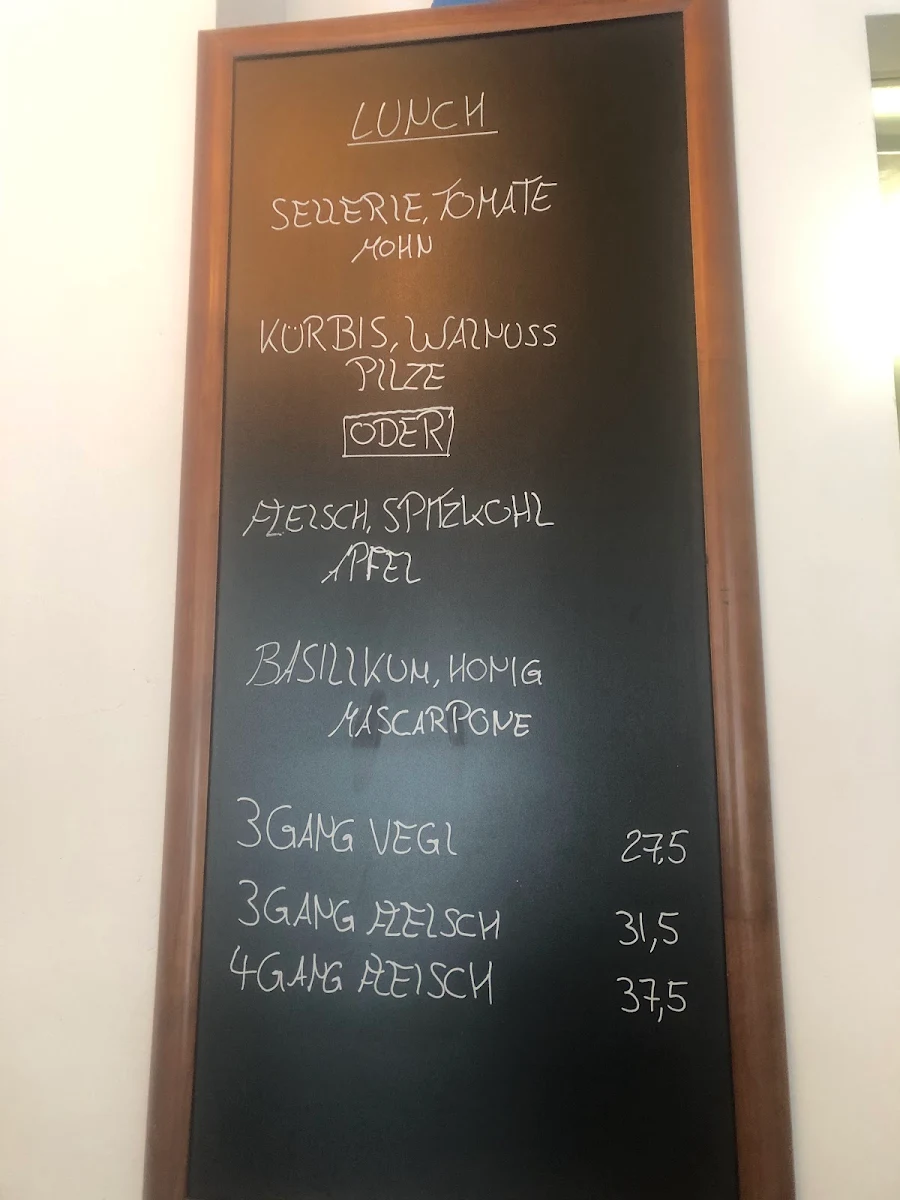 LUNCH
SELLERIE, TOMATE
MOHN
KÜRBIS, WALNUSS
PILZE
ODER
FLEISCH, SPITZKOHL
APFEL
BASILIKUM, HONIG
MASCARPONE
3 GANG VEGI 27,5
3 GANG FLEISCH 31,5
4 GANG FLEISCH 37,5